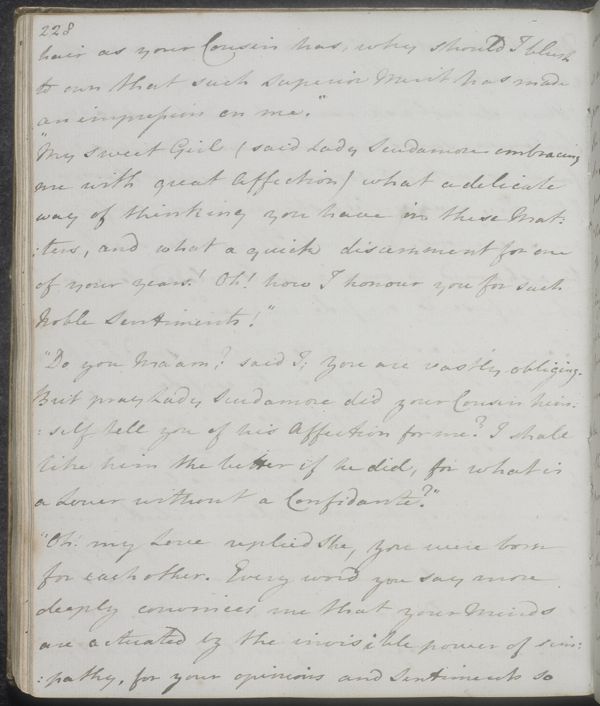 228
hair as your Cousin has, why should I blush
to own that such superior Merit has made
an impression on me."
"My sweet Girl (said Lady Scudamore embracing
me with great Affection) what a delicate
way of thinking you have in these Mat:
:ters, and what a quick discernment for one
of your years! Oh! how I honour you for such
Noble Sentiments!"
"Do you Ma'am? said I; You are vastly obliging.
But pray Lady Scudamore did your Cousin him:
:self tell you of his Affection for me? I shall
like him the better if he did, for what is
a Lover without a Confidante?"
"Oh! my Love replied She, you were born
for each other. Every word you say more
deeply convinces me that your Minds
are actuated by the invisible power of sim:
:pathy, for your opinions and Sentiments so